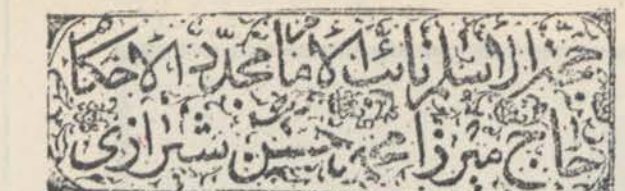 حجة الاسلام نائب الامام مجدد الاحکام
حاج میرزا محمد حسن شیرازی